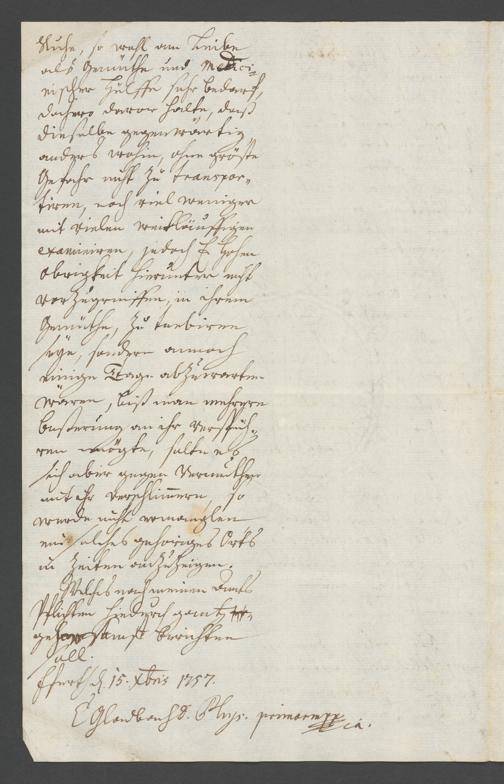 Ruhe, so wohl am Leibe
als Gemüthe und Medici-
nischer Hülffe sehr bedarf,
dahero davor halte, daß
dieselbe gegenwärtig
anders wohin, ohne gröste
Gefahr nicht zu transpor-
tiren, noch viel weniger
mit vielen weitläuffigen
examiniren, jedoch hohen
Obrigkeit hierunter nicht
vorzugreiffen, in ihrem
Gemüthe, zu turbiren
seye, sondern annoch
einige Tage abzuwarten
wären, biß man mehrere
beßerung an ihr verspüh-
ren mögte, solte es
sich aber gegen Vermuthen
mit ihr verschlimmern, so
werde nicht ermanglen
ein solches gehöriges Orts
in Zeiten anzuzeigen.
Welches nach meinen Amts
Pflichten hiedurch gantz
gehorsamst berichten
soll.
d. 15. Xbris 1757.
Gladbach D. Phys. primarius